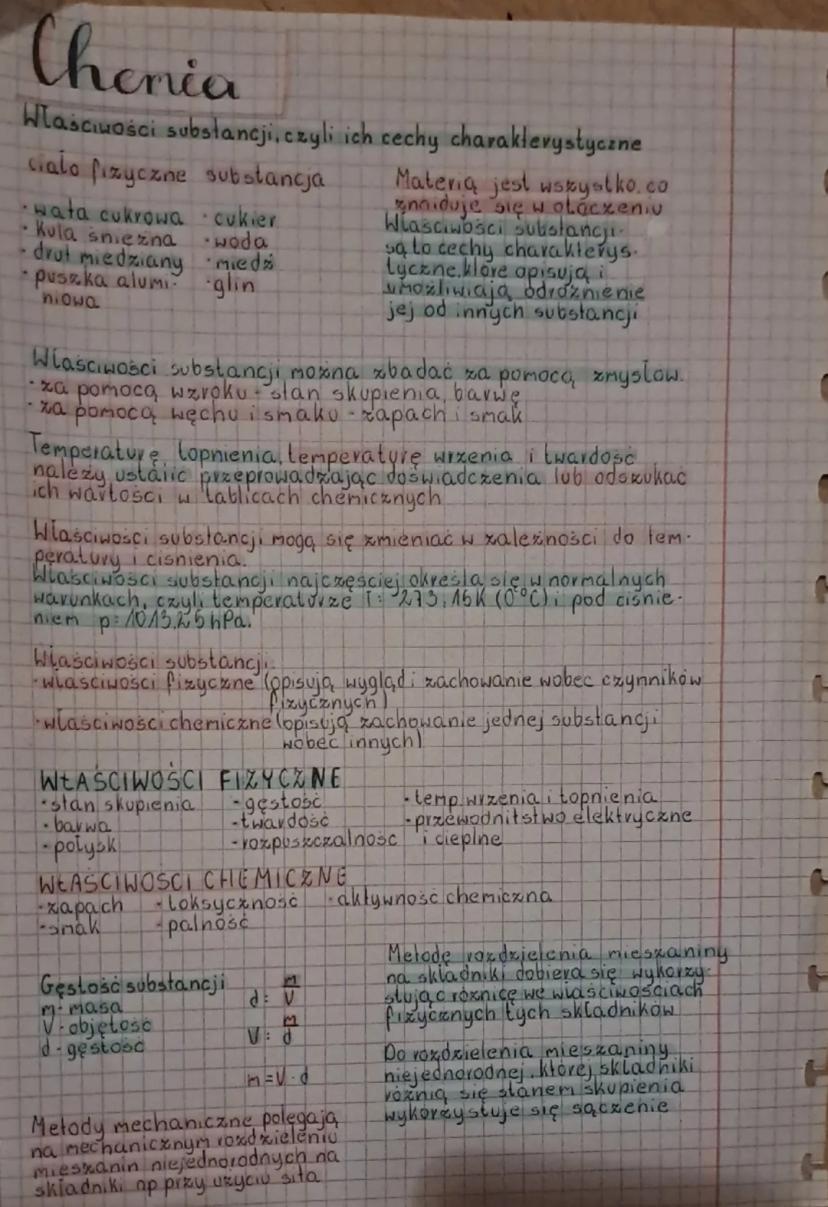 Chemia
Właściwości substancji, czyli ich cechy charakterystyczne
ciało fizyczne substancja
• wata cukrowa • cukier
• kula śnieżna • woda
- drut miedziany • miedź
• puszka alumi- • glin
niowa
Materią jest wszystko, co
znajduje się w otoczeniu
Właściwości substancji-
są to cechy charakterys-
tyczne, które opisują i
umożliwiają odróżnienie
jej od innych substancji
Właściwości substancji można zbadać za pomocą zmysłów.
• za pomocą wzroku - stan skupienia, barwę
- za pomocą węchu i smaku - zapach i smak
Temperaturę topnienia, temperaturę wrzenia i twardość
należy ustalić przeprowadzając doświadczenia lub odszukać
ich wartości w tablicach chemicznych
Właściwości substancji mogą się zmieniać w zależności do tem-
peratury i ciśnienia.
Właściwości substancji najczęściej określa się w normalnych
warunkach, czyli temperaturze T= 273,15K (0°C) i pod ciśnie-
niem p= 1013,25 hPa.
Właściwości substancji:
- właściwości fizyczne (opisują wygląd i zachowanie wobec czynników
fizycznych)
• właściwości chemiczne (opisują zachowanie jednej substancji
wobec innych)
WŁAŚCIWOŚCI FIZYCZNE
• stan skupienia - gęstość • temp. wrzenia i topnienia
- barwa - twardość - przewodnitstwo elektryczne
- połysk - rozpuszczalność i cieplne
WŁAŚCIWOŚCI CHEMICZNE
- zapach - toksyczność - aktywność chemiczna
- smak - palność
Gęstość substancji
m- masa
V- objętość
d - gęstość
d = m/V
V = m/d
m = V · d
Metodę rozdzielenia mieszaniny
na składniki dobiera się wykorzy-
stując różnicę we właściwościach
fizycznych tych składników
Do rozdzielenia mieszaniny
niejednorodnej, której składniki
różnią się stanem skupienia
wykorzystuje się sączenie
Metody mechaniczne polegają
na mechanicznym rozdzieleniu
mieszanin niejednorodnych na
składniki np przy użyciu sita